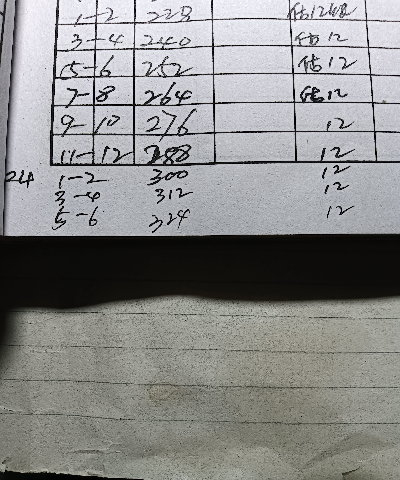 1-2 228 估12
3-4 240 估12
5-6 252 估12
7-8 264 估12
9-10 276 12
11-12 288 12
24 1-2 300 12
3-4 312 12
5-6 324 12